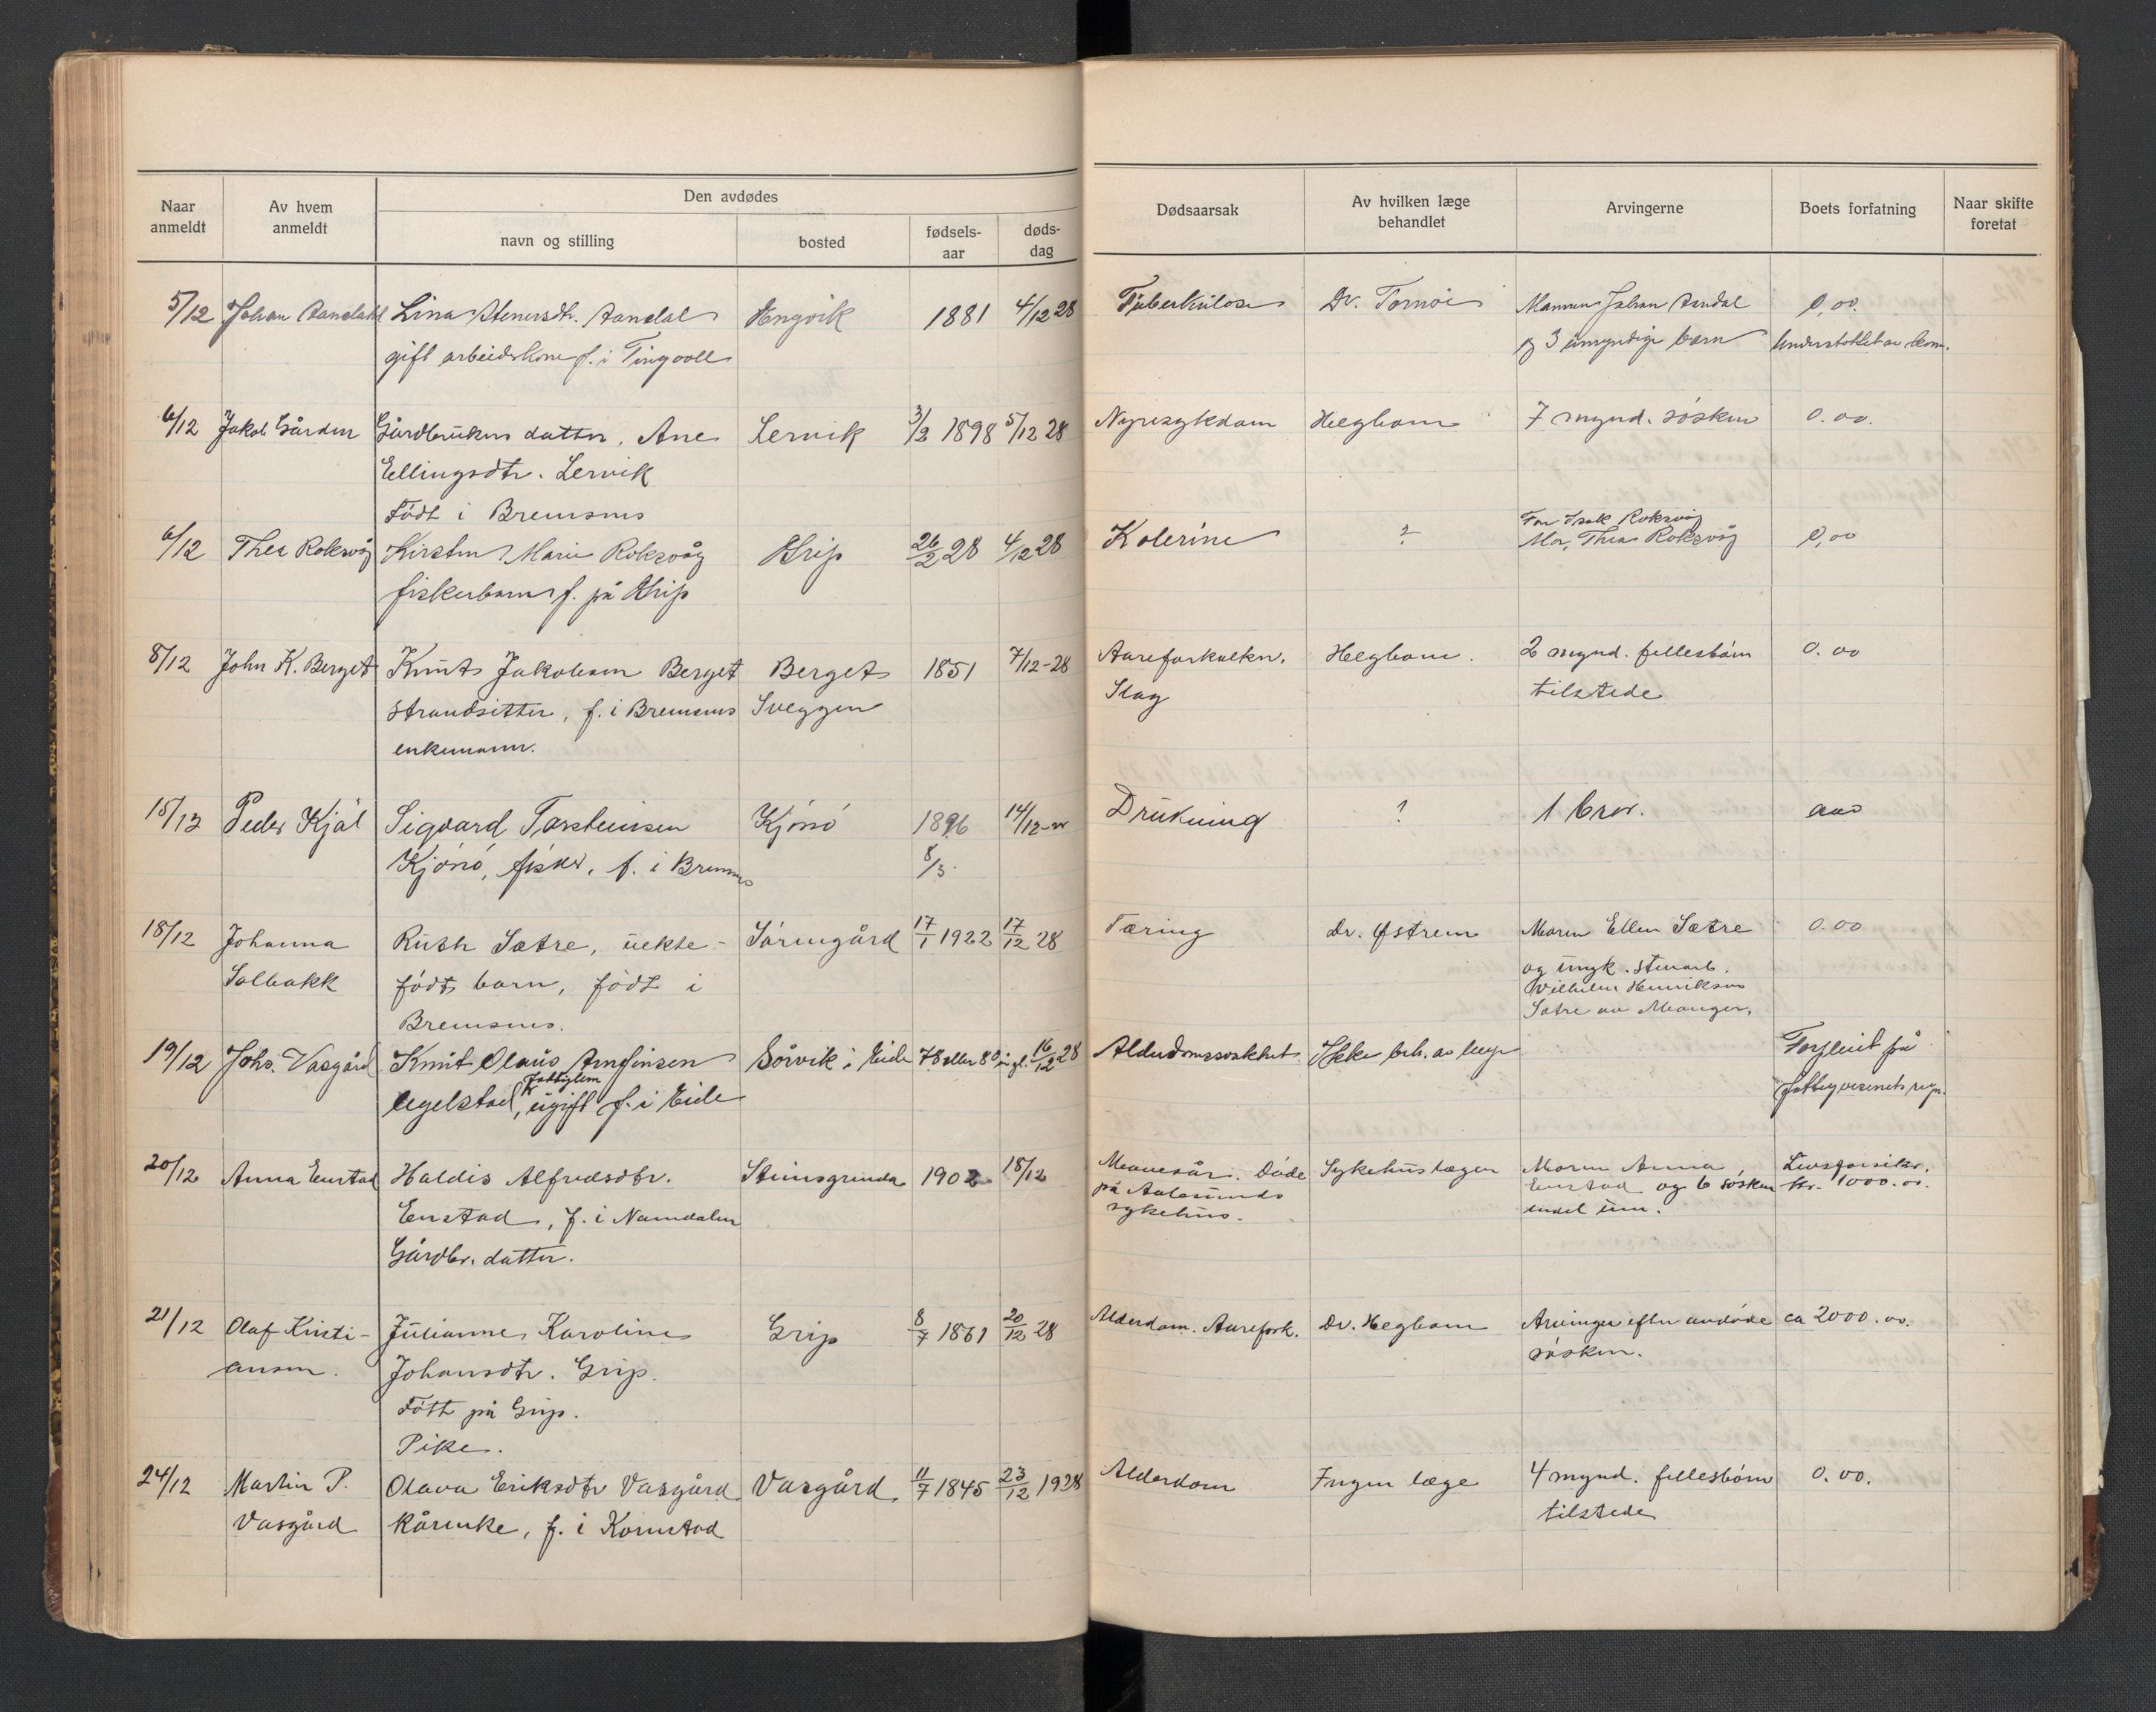 Naar anmeldt
Av hvem anmeldt
Den avdødes
navn og stilling
bosted
fødsels-aar
døds-dag
Dødsaarsak
Av hvilken læge behandlet
Arvingerne
Boets forfatning
Naar skifte foretat
5/12 Johan Aandahl Lina Stenersdtr. Aandal Hengvik 1881 4/12 28 Tuberkulose Dr. Tornøe Mannen Johan Aandal 0,00.
gift arbeidskone f. i Tingvoll og 3 umyndige barn Understøttet av kom.
6/12 Jakob Gården Gårdbrukers datter, Ane Lervik 3/2 1898 5/12 28 Nyresykdom Heghom 7 mynd. søsken 0.00.
Ellingsdtr. Lervik
Født i Bremsnes
Far Isak Roksvåg
6/12 Thea Roksvåg Kirsten Marie Roksvåg Grip 26/2 28 4/12 28 Kolerine ? Mor, Thea Roksvåg 0,00
fiskerbarn f. på Grip
8/12 John K. Berget Knut Jakobsen Berget Berget 1851 7/12-28 Aareforkalkn. Heghom. 2 mynd. fellesbörn 0.00
strandsitter, f. i Bremsnes Sveggen Slag tilstede
enkemann.
15/12 Peder Kjøl Sigvard Torsteinsen Kjönö 1896 14/12 Drukning ? 1 bror.
Kjönö, fisker, f. i Bremsnes 8/3
18/12 Johanna Ruth Sætre, uekte- Söringård 17/1 1922 17/12 28 Tæring Dr. Østrem Moren Ellen Sætre 0.00
Solbakk født barn, født i og ungk. stenarb.
Wilhelm Henriksen
Bremsnes. Sætre av Manger.
19/12 Johs. Vasgård Knut Olaus Arnfinsen Sörvik i Eide 78 eller 80 år gl. 16/12 28 Alderdomssvakhet. Ikke beh. av læge Forpleiet på
fattiglem
Legelstad, ugift f. i Eide fattigvesenets regn.
20/12 Anna Enstad Haldis Alfredsdtr. Steinsgrunda 1902 18/12 Mavesår. Döde Sykehuslægen Moren Anna, Livsforsikr.
Enstad, f. i Namdalen på Aalesunds Enstad og 6 søsken kr. 1000.00.
sykehus. endel um.
Gårdbr. datter.
21/12 Olaf Kristi- Julianne Karoline Grip 8/7 1861 20/12 28 Alderdom. Aarefork. Dr. Heghom Arvinger efter avdøde ca 2000.00.
ansen. Johansdtr. Grip. søsken.
Fött på Grip.
Pike.
24/12 Martin P. Olava Eriksdtr Vasgård Vasgård 11/7 1845 23/12 1928 Alderdom Ingen læge 4 mynd. fellesbörn 0.00.
Vasgård kårenke, f. i Kornstad tilstede